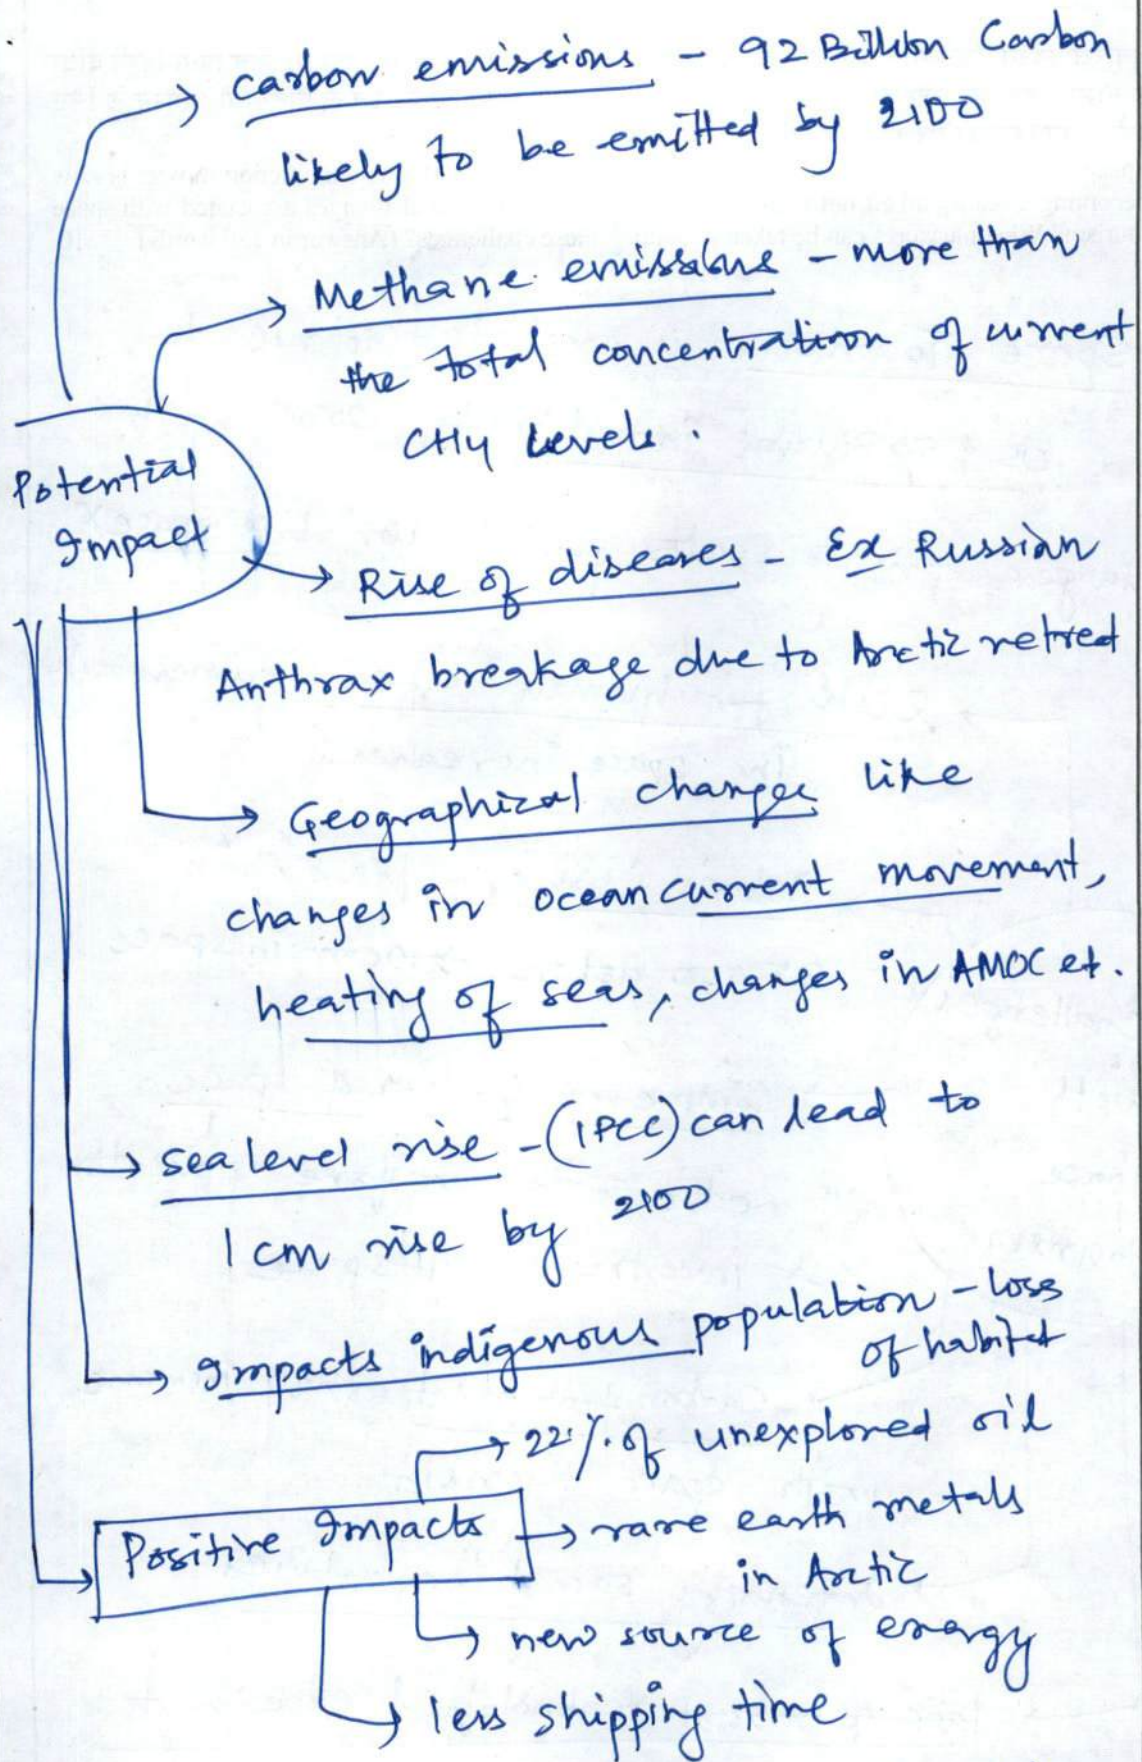 carbon emissions - 92 Billion Carbon
likely to be emitted by 2100
Methane emissions - more than
the total concentration of current
CH4 levels.
Potential
Impact
Rise of diseases - Ex Russian
Anthrax breakage due to Arctic retred
Geographical changes like
changes in ocean current movement,
heating of seas, changes in AMOC et.
sea level rise - (IPCC) can lead to
1 cm rise by 2100
Impacts indigenous population - loss
of habitat
22% of unexplored oil
Positive Impacts
rare earth metals
in Arctic
new source of energy
less shipping time